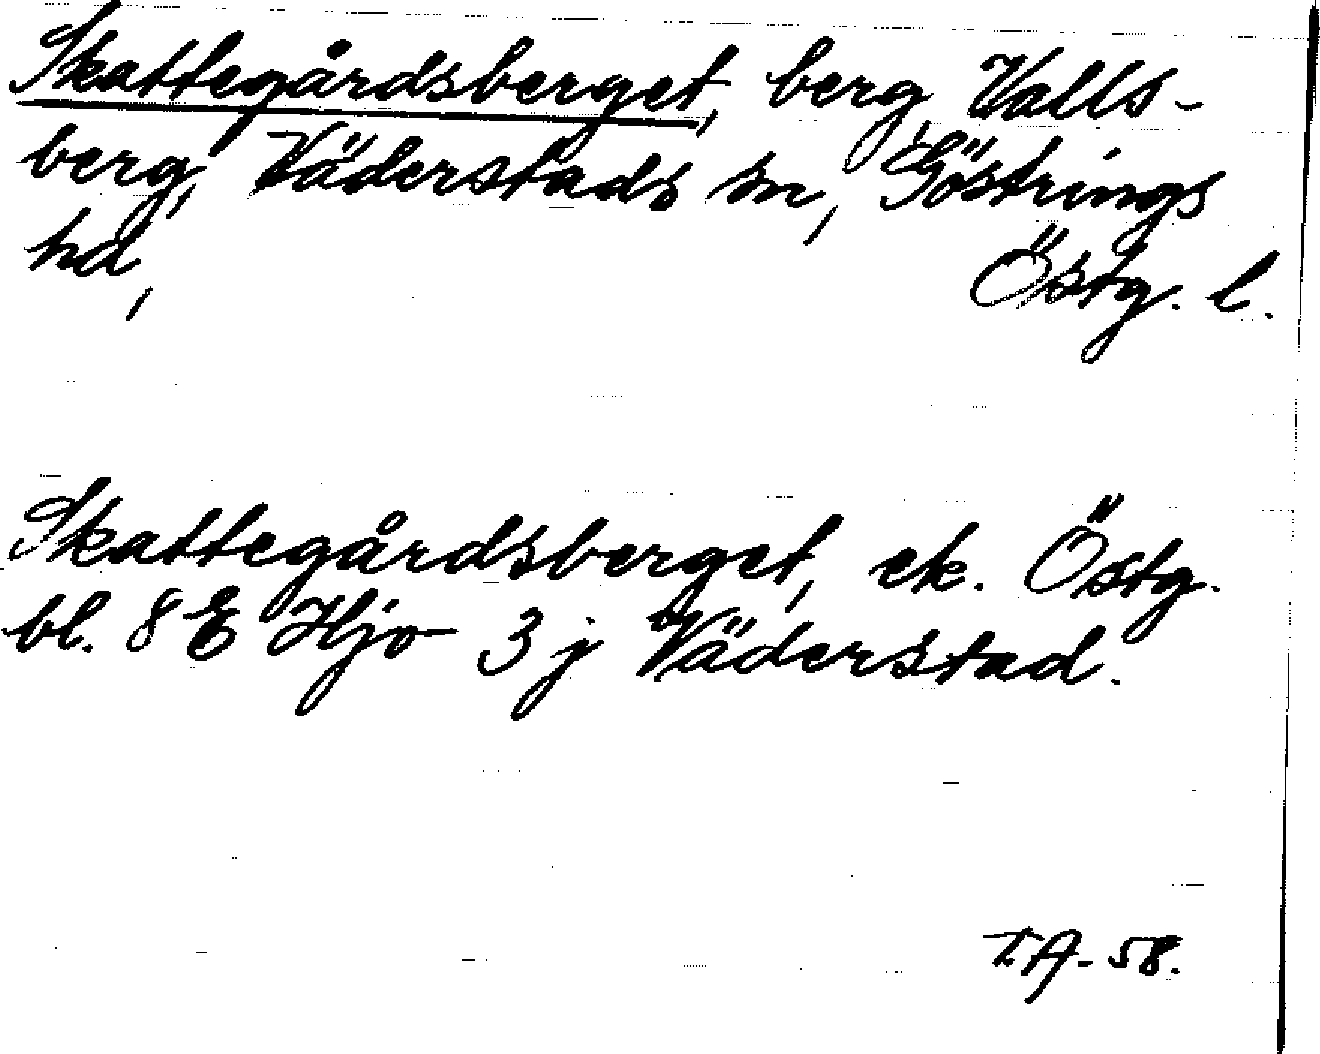 Skattegårdsberget, berg, Valls-
berg, Väderstads sn, Göstrings
hd,
Östg. l.
Skattegårdsberget, ek. Östg.
bl. 8 E Hjo 3 j Väderstad.
T.A-58.